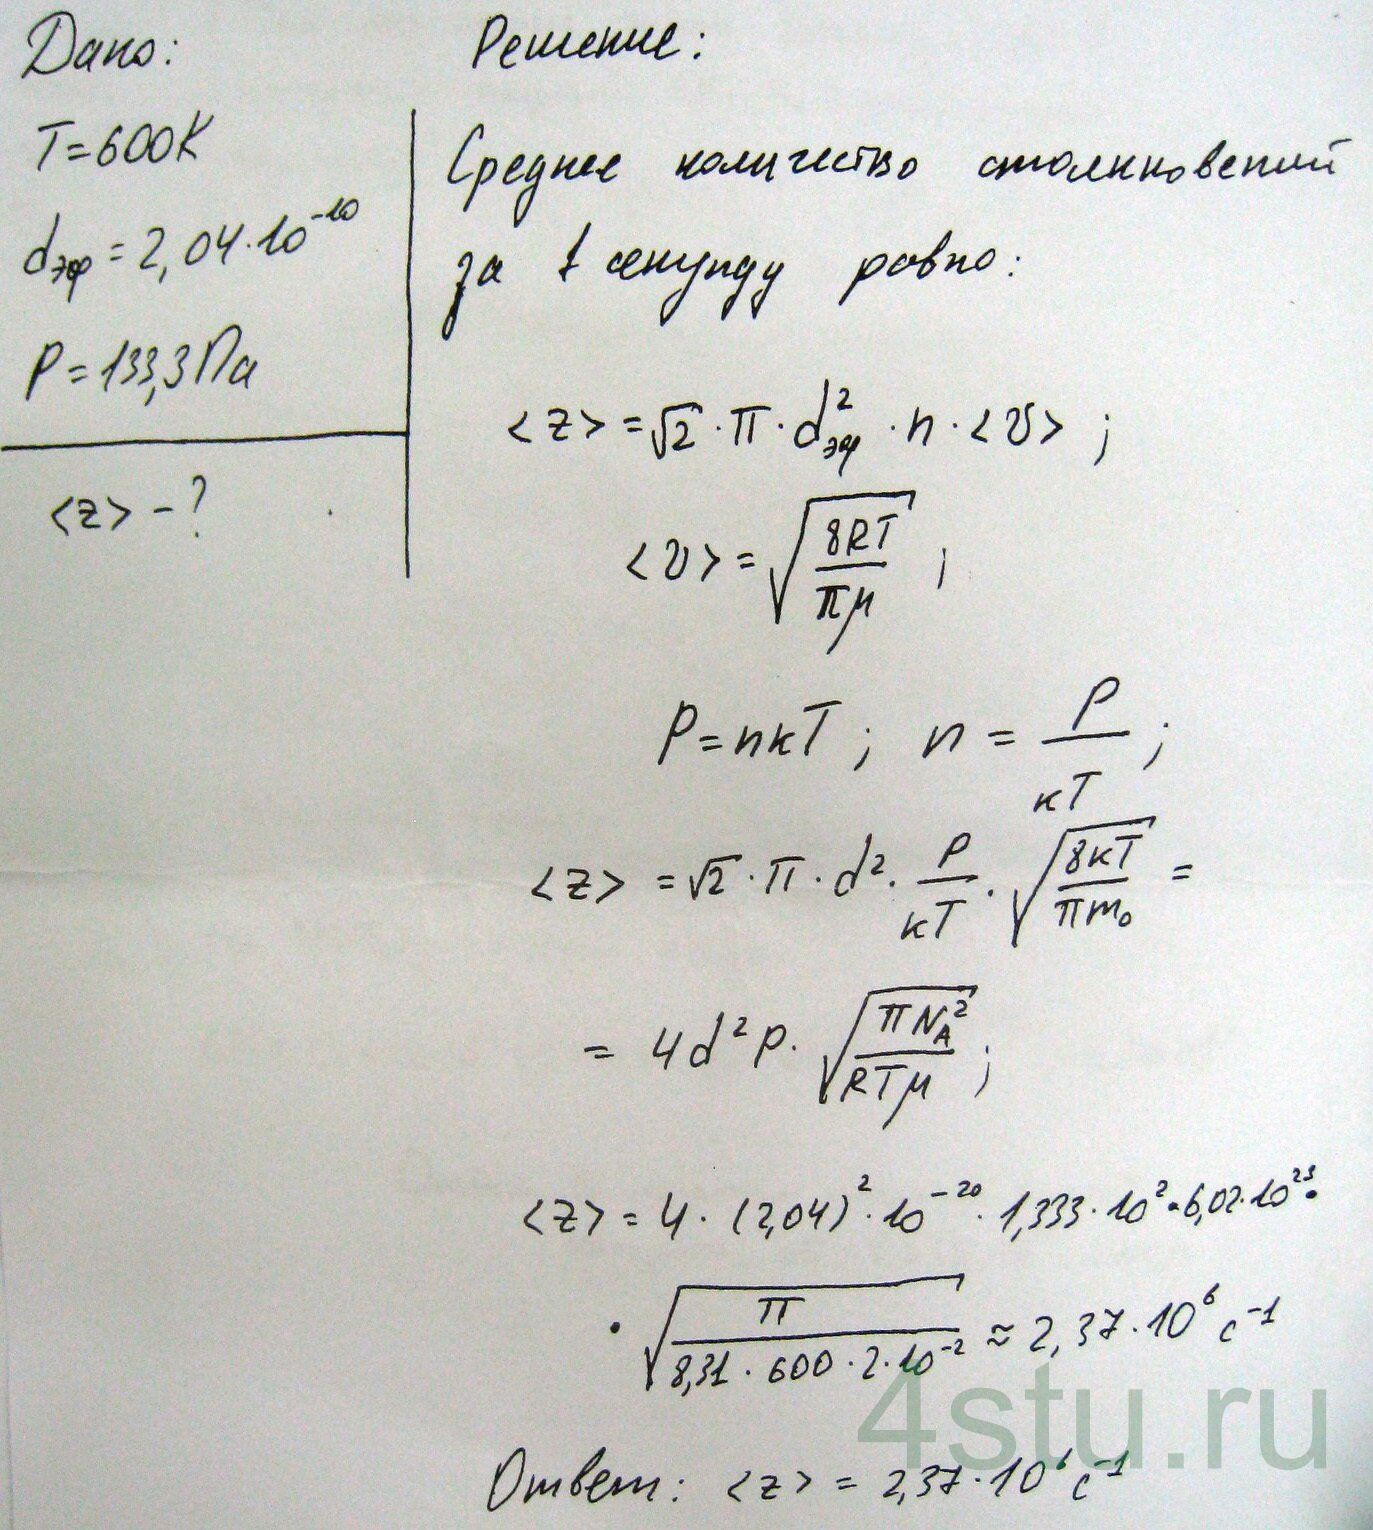 Дано:
T=600К
dэф = 2,04·10⁻¹⁰
P=133,3Па
<z> - ?
Решение:
Среднее количество столкновений
за 1 секунду равно:
<z> = √2 · π · d²эф · n · <υ> ;
<υ> = √(8RT/πμ) ;
P=nкT ; n = P/кT ;
<z> = √2 · π · d² · P/кT · √(8кT/πm₀) =
= 4d²P · √(πN_A²/RTμ) ;
<z> = 4 · (2,04)² · 10⁻²⁰ · 1,333 · 10² · 6,02·10²³ ·
· √(π/8,31 · 600 · 2·10⁻²) ≈ 2,37·10⁶ с⁻¹
4stu.ru
Ответ: <z> = 2,37·10⁶ с⁻¹